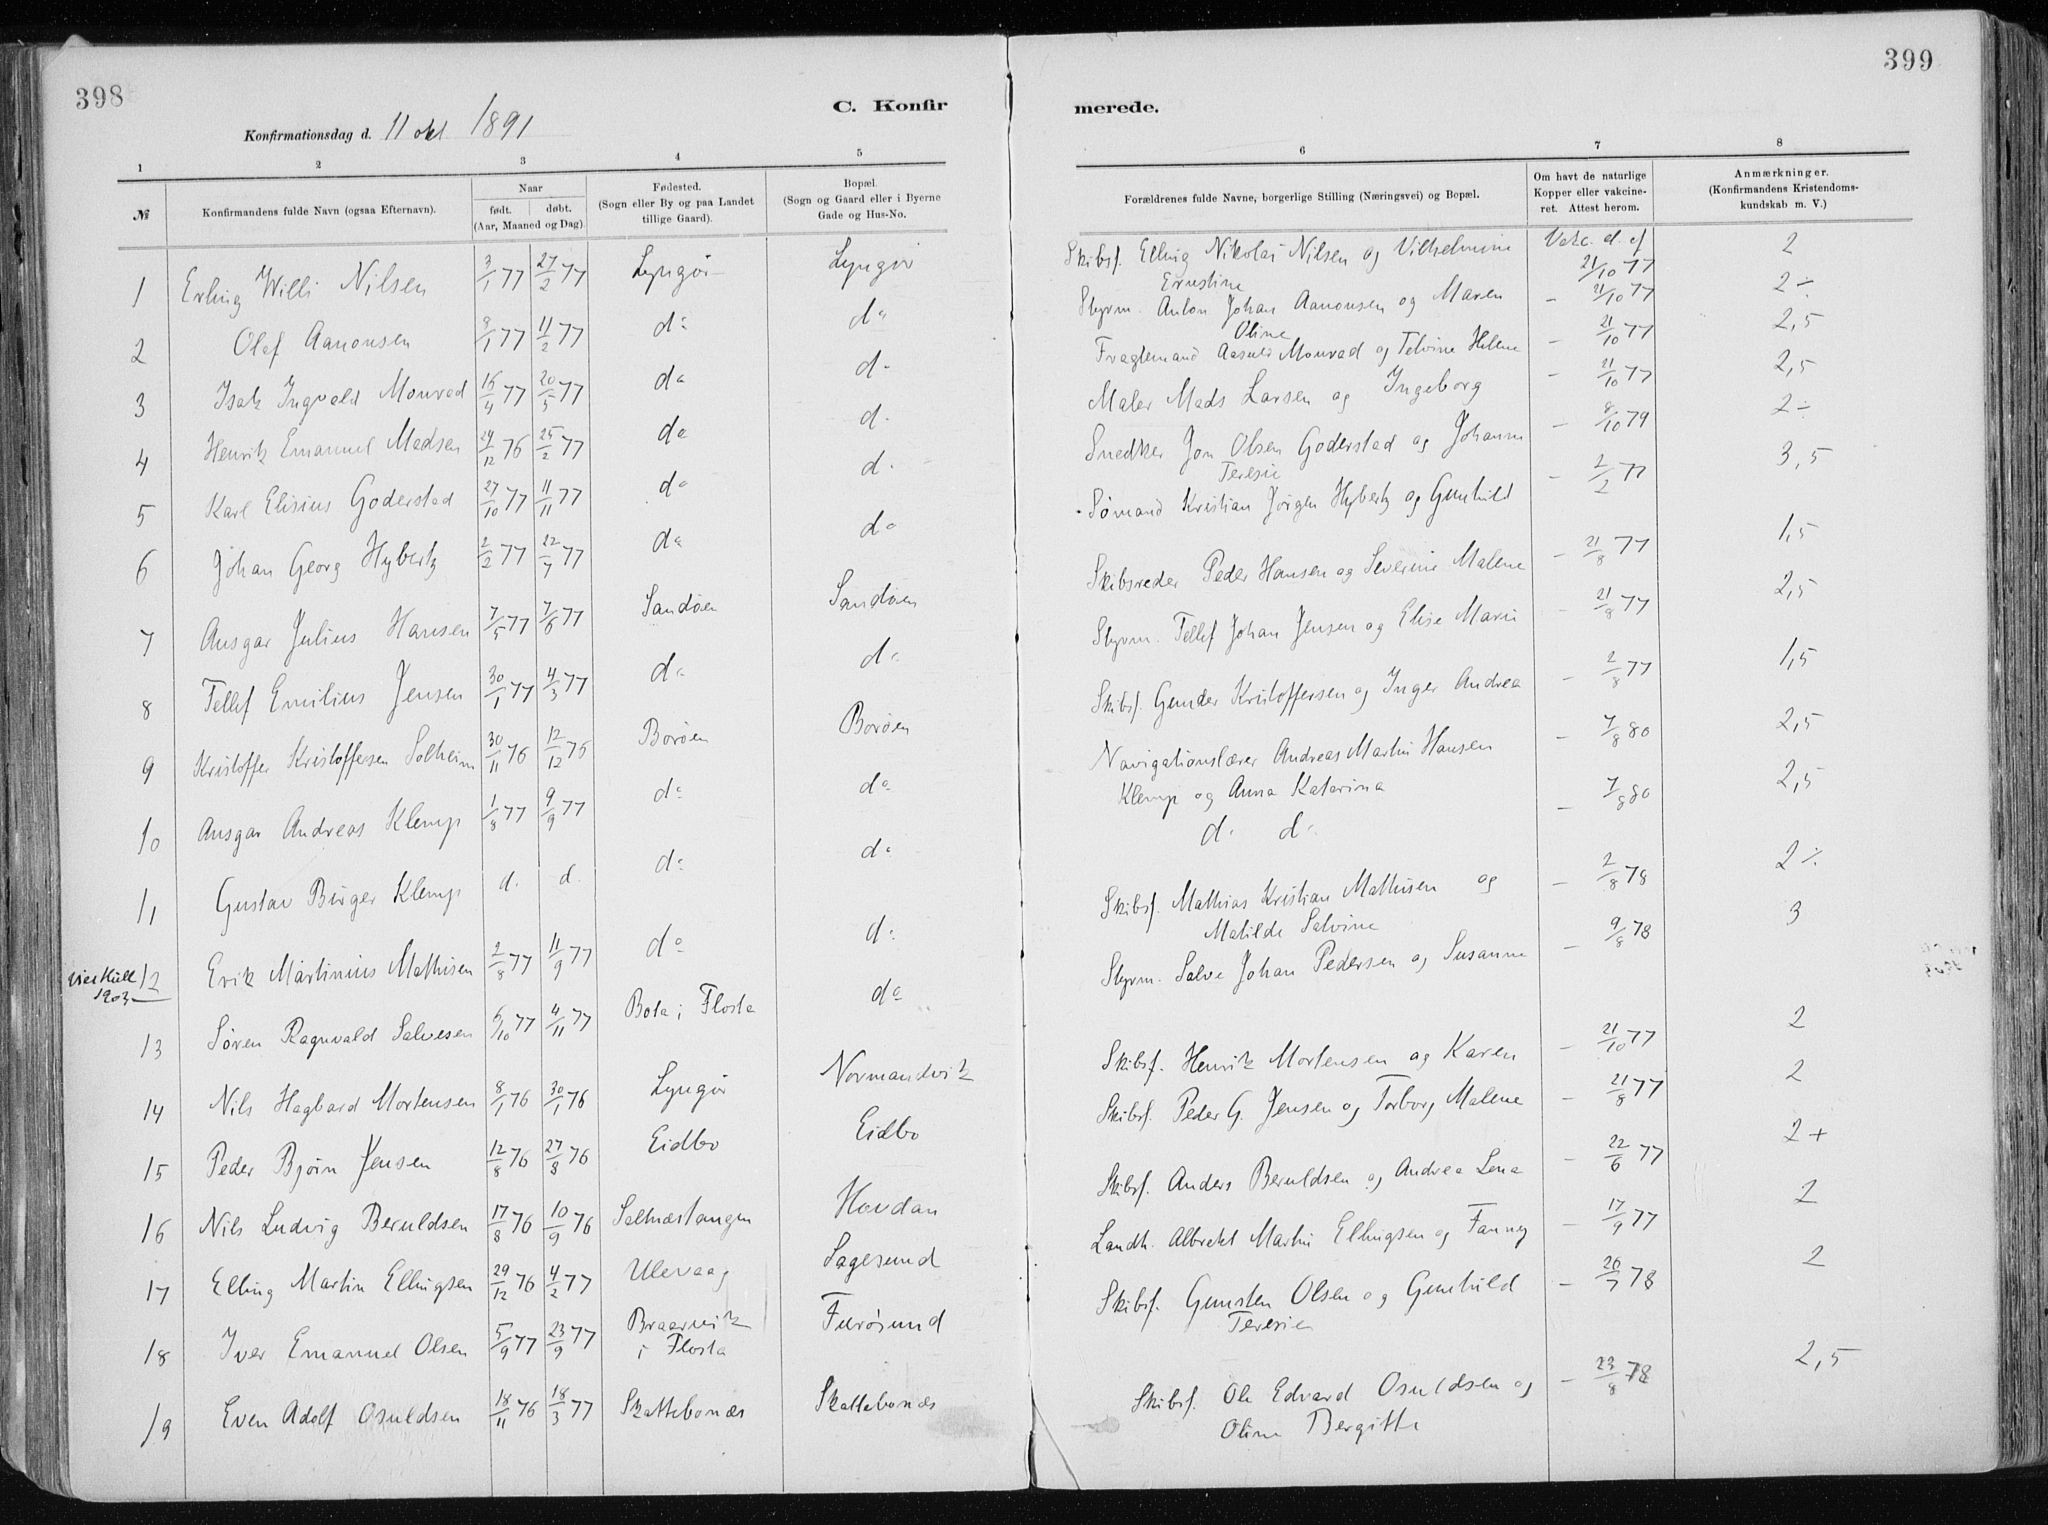 398
399
C. Konfir
merede.
Konfirmationsdag d. 11 okt 1891
1 2 3 4 5 6 7 8
№ Konfirmandens fulde Navn (ogsaa Efternavn). Naar født. døbt. (Aar, Maaned og Dag). Fødested. (Sogn eller By og paa Landet tillige Gaard). Bopæl. (Sogn og Gaard eller i Byerne Gade og Hus-No. Forældrenes fulde Navne, borgerlige Stilling (Næringsvei) og Bopæl. Om havt de naturlige Kopper eller vakcineret. Attest herom. Anmærkninger. (Konfirmandens Kristendomskundskab m. V.)
1 Erling Willi Nilsen 3/1 77 27/2 77 Lyngør Lyngør Skibsf. Elling Nikolai Nilsen og Vilhelmine Ernestine Vakc. d. ef 21/10 77 2
2 Olef Aanonsen 8/1 77 11/2 77 do do Styrm. Anton Johan Aanonsen og Maren Oline – 21/10 77 2÷
3 Isak Ingvald Monrad 16/4 77 20/5 77 do d. Fragtemand Aasuld Monrad og Telvine Helene – 21/10 77 2,5
4 Henrik Emanuel Madsen 24/12 76 25/2 77 do d. Maler Mads Larsen og Ingeborg – 21/10 77 2,5
5 Karl Elisius Goderstad 27/10 77 11/11 77 do d. Snedker Jon Olsen Goderstad og Johanne Teresie – 8/10 79 2÷
6 Johan Georg Hybertz 2/2 77 22/7 77 do do Sømand Kristian Jørgen Hybertz og Gunhild – 2/2 77 3,5
7 Ansgar Julius Hansen 7/5 77 7/6 77 Sandøen Sandøen Skibsreder Peder Hansen og Severine Malene – 21/8 77 1,5
8 Tellef Emilius Jensen 30/1 77 4/3 77 do do Styrm. Tellef Johan Jensen og Elise Marie – 21/8 77 2,5
9 Kristoffer Kristoffersen Solheim 30/11 76 12/12 76 Borøen Borøen Skibsf. Gunder Kristoffersen og Inger Andrea – 2/8 77 1,5
10 Ansgar Andreas Klemp 1/8 77 9/9 77 do do Navigationslærer Andreas Martin Hansen Klemp og Anna Katarina – 7/8 80 2,5
11 Gustav Birger Klemp d. d. do do do do – 7/8 80 2,5
12 Erik Martinius Mathisen 2/8 77 11/9 77 do do Skibsf. Mathias Kristian Mathisen og Matilde Salvine – 2/8 78 2÷
1903
13 Søren Ragnvald Salvesen 6/10 77 4/11 77 Bota i Flosta do Styrm. Salve Johan Pedersen og Susanne – 9/8 78 3
14 Nils Hagbard Mortensen 8/1 76 30/1 76 Lyngør Normandvik Skibsf. Henrik Mortensen og Karen – 21/10 77 2
15 Peder Bjørn Jensen 12/8 76 27/8 76 Eidbo Eidbo Skibsf. Peder G. Jensen og Torborg Malene – 21/8 77 2
16 Nils Ludvig Beruldsen 17/8 76 10/9 76 Saltnæstangen Hovdan Skibsf. Anders Beruldsen og Andrea Lena – 22/6 77 2+
17 Elling Martin Ellingsen 29/12 76 4/2 77 Ulevaag Sagesund Landh. Albrekt Martin Ellingsen og Fanny – 17/9 77 2
18 Iver Emanuel Olsen 5/9 77 23/9 77 Braarvik i Flosta Furøsund Skibsf. Gunsten Olsen og Gunhild Teresie – 20/7 78 2
19 Even Adolf Osuldsen 18/11 76 18/3 77 Skattebonæs Skattebonæs Skibsf. Ole Edvard Osuldsen og Oline Bergitte – 23/8 78 2,5